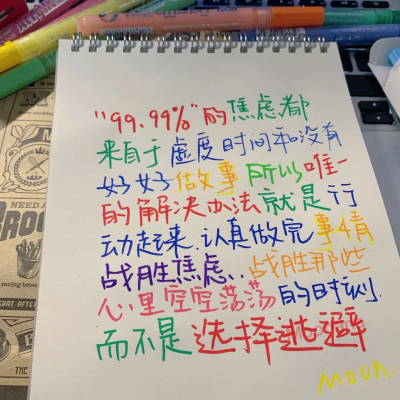 "99.99%"的焦虑都
来自于虚度时间和没有
好好做事 所以唯一
的解决办法就是行
动起来.认真做完事情
战胜焦虑..战胜那些
心里空空荡荡的时刻.
而不是选择逃避
Moon.
NEED A